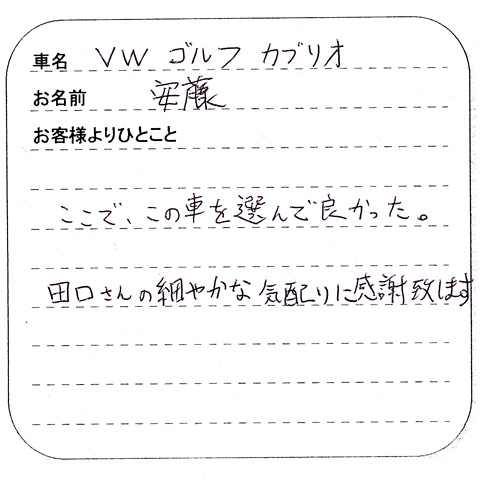 車名 VW ゴルフ カブリオ
お名前 安藤
お客様よりひとこと
ここで、この車を選んで良かった。
田口さんの細やかな気配りに感謝致します